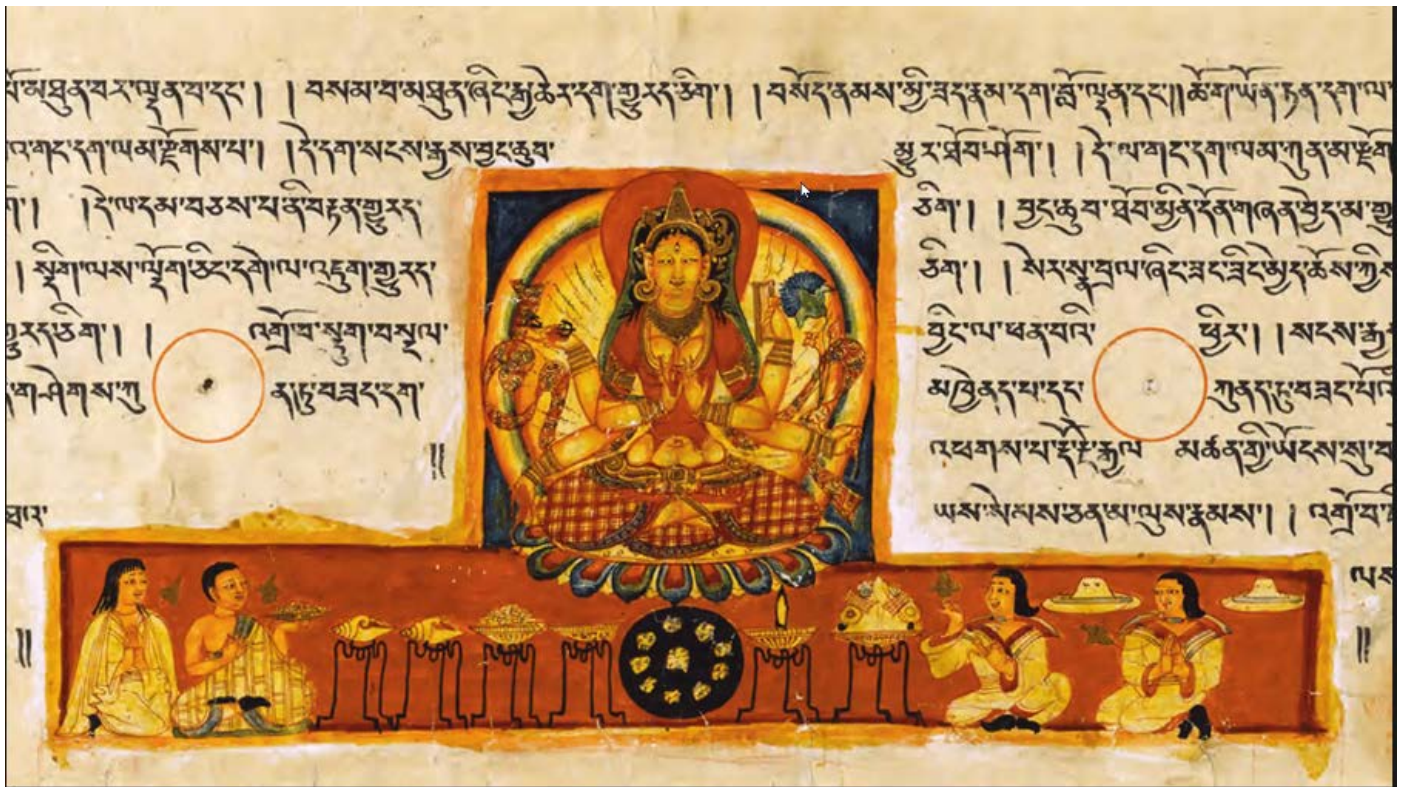 མཐུན་བར་ལྡན་བ་དང་། །བསམ་བ་མཐུན་ཞིང་རྒྱ་ཆེར་དག་གྱུརད་ཅིག་། །བསོད་ནམས་མྱི་ཟད་རྣམ་དག་བློ་ལྡན་དང་།།ཚོ་ག་ཡོན་ཏན་དག་ལ་
གང་དག་ལམ་རྫོགས་པ་། །དེ་དག་སངས་རྒྱས་བྱང་ཆུབ་ མྱུར་ཐོབ་ཤོག་། །དེ་ལ་གང་དག་ལམ་ཀུན་མ་རྫོག
།དེ་ལ་དམ་བཅས་པ་ནི་བརྟན་གྱུརད་ ཅིག་། །བྱང་ཆུབ་ཐོབ་མྱིན་དོན་གཞན་བྱེད་མ་གྱུ
།སྡིག་ལས་ལྡོག་ཅིང་དགེ་ལ་འདུག་གྱུརད་ ཅིག་། །སེར་སྣ་བྲལ་ཞིང་ཟང་ཟིང་མྱེད་ཆོས་ཀྱིས
གྱུརད་ཅིག་། །འགྲོ་བ་སྡུག་བསྔལ་ བྱིང་ལ་ཕན་བའི་ ཕྱིར་། །སངས་རྒྱ
གཤེགས་ཀུ ན་ཏུ་བཟང་དག་ མཁྱེནད་པ་དང་ ཀུནད་ཏུ་བཟང་པོའི
༎ འཕགས་པ་རྡོ་རྗེ་རྒྱལ མཚན་གྱི་ཡོངས་སུ་བ
ཐའ་ ཡས་སེམས་ཅན་མ་ལུས་རྣམས་། །འགྲོ་བ་
ལས
༎ ༎